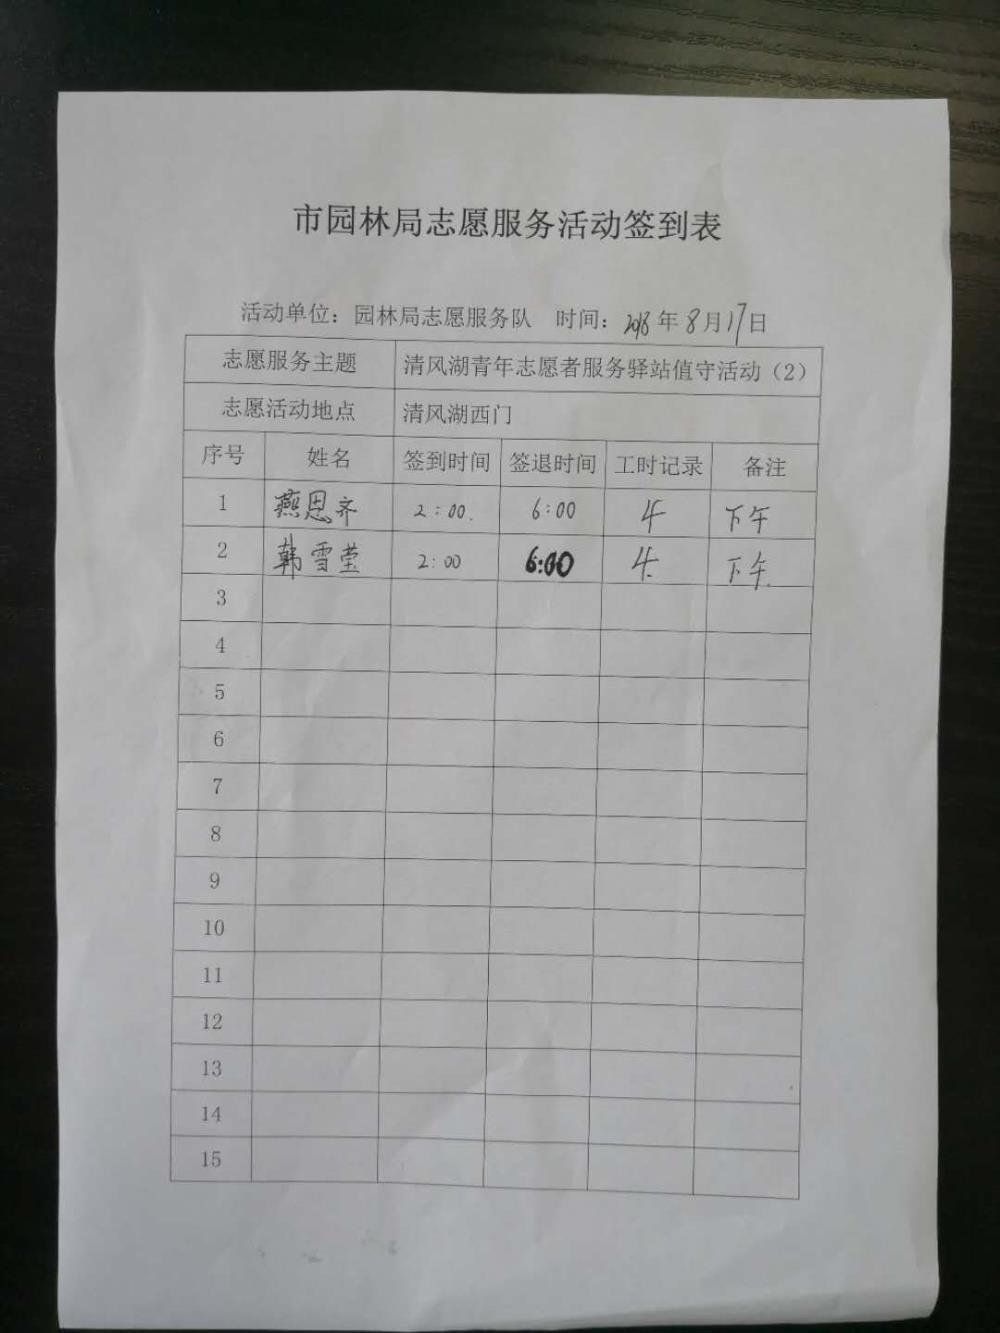 市园林局志愿服务活动签到表
活动单位：园林局志愿服务队 时间：2018年8月17日
志愿服务主题 清风湖青年志愿者服务驿站值守活动（2）
志愿活动地点 清风湖西门
序号 姓名 签到时间 签退时间 工时记录 备注
1 燕恩齐 2:00. 6:00 4 下午
2 韩雪莹 2:00 6:00 4 下午
3
4
5
6
7
8
9
10
11
12
13
14
15